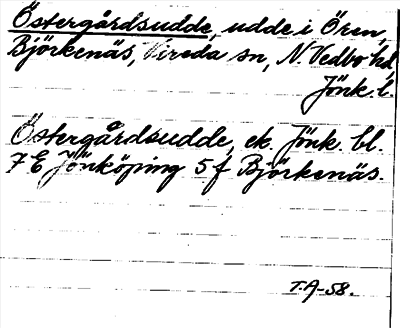 Östergårdsudde, udde i Ören,
Björkenäs, Vireda sn, N. Vedbo hd
Jönk. l.
Östergårdsudde, ek. Jönk. bl.
7 E Jönköping 5 f Björkenäs.
T.A-58.